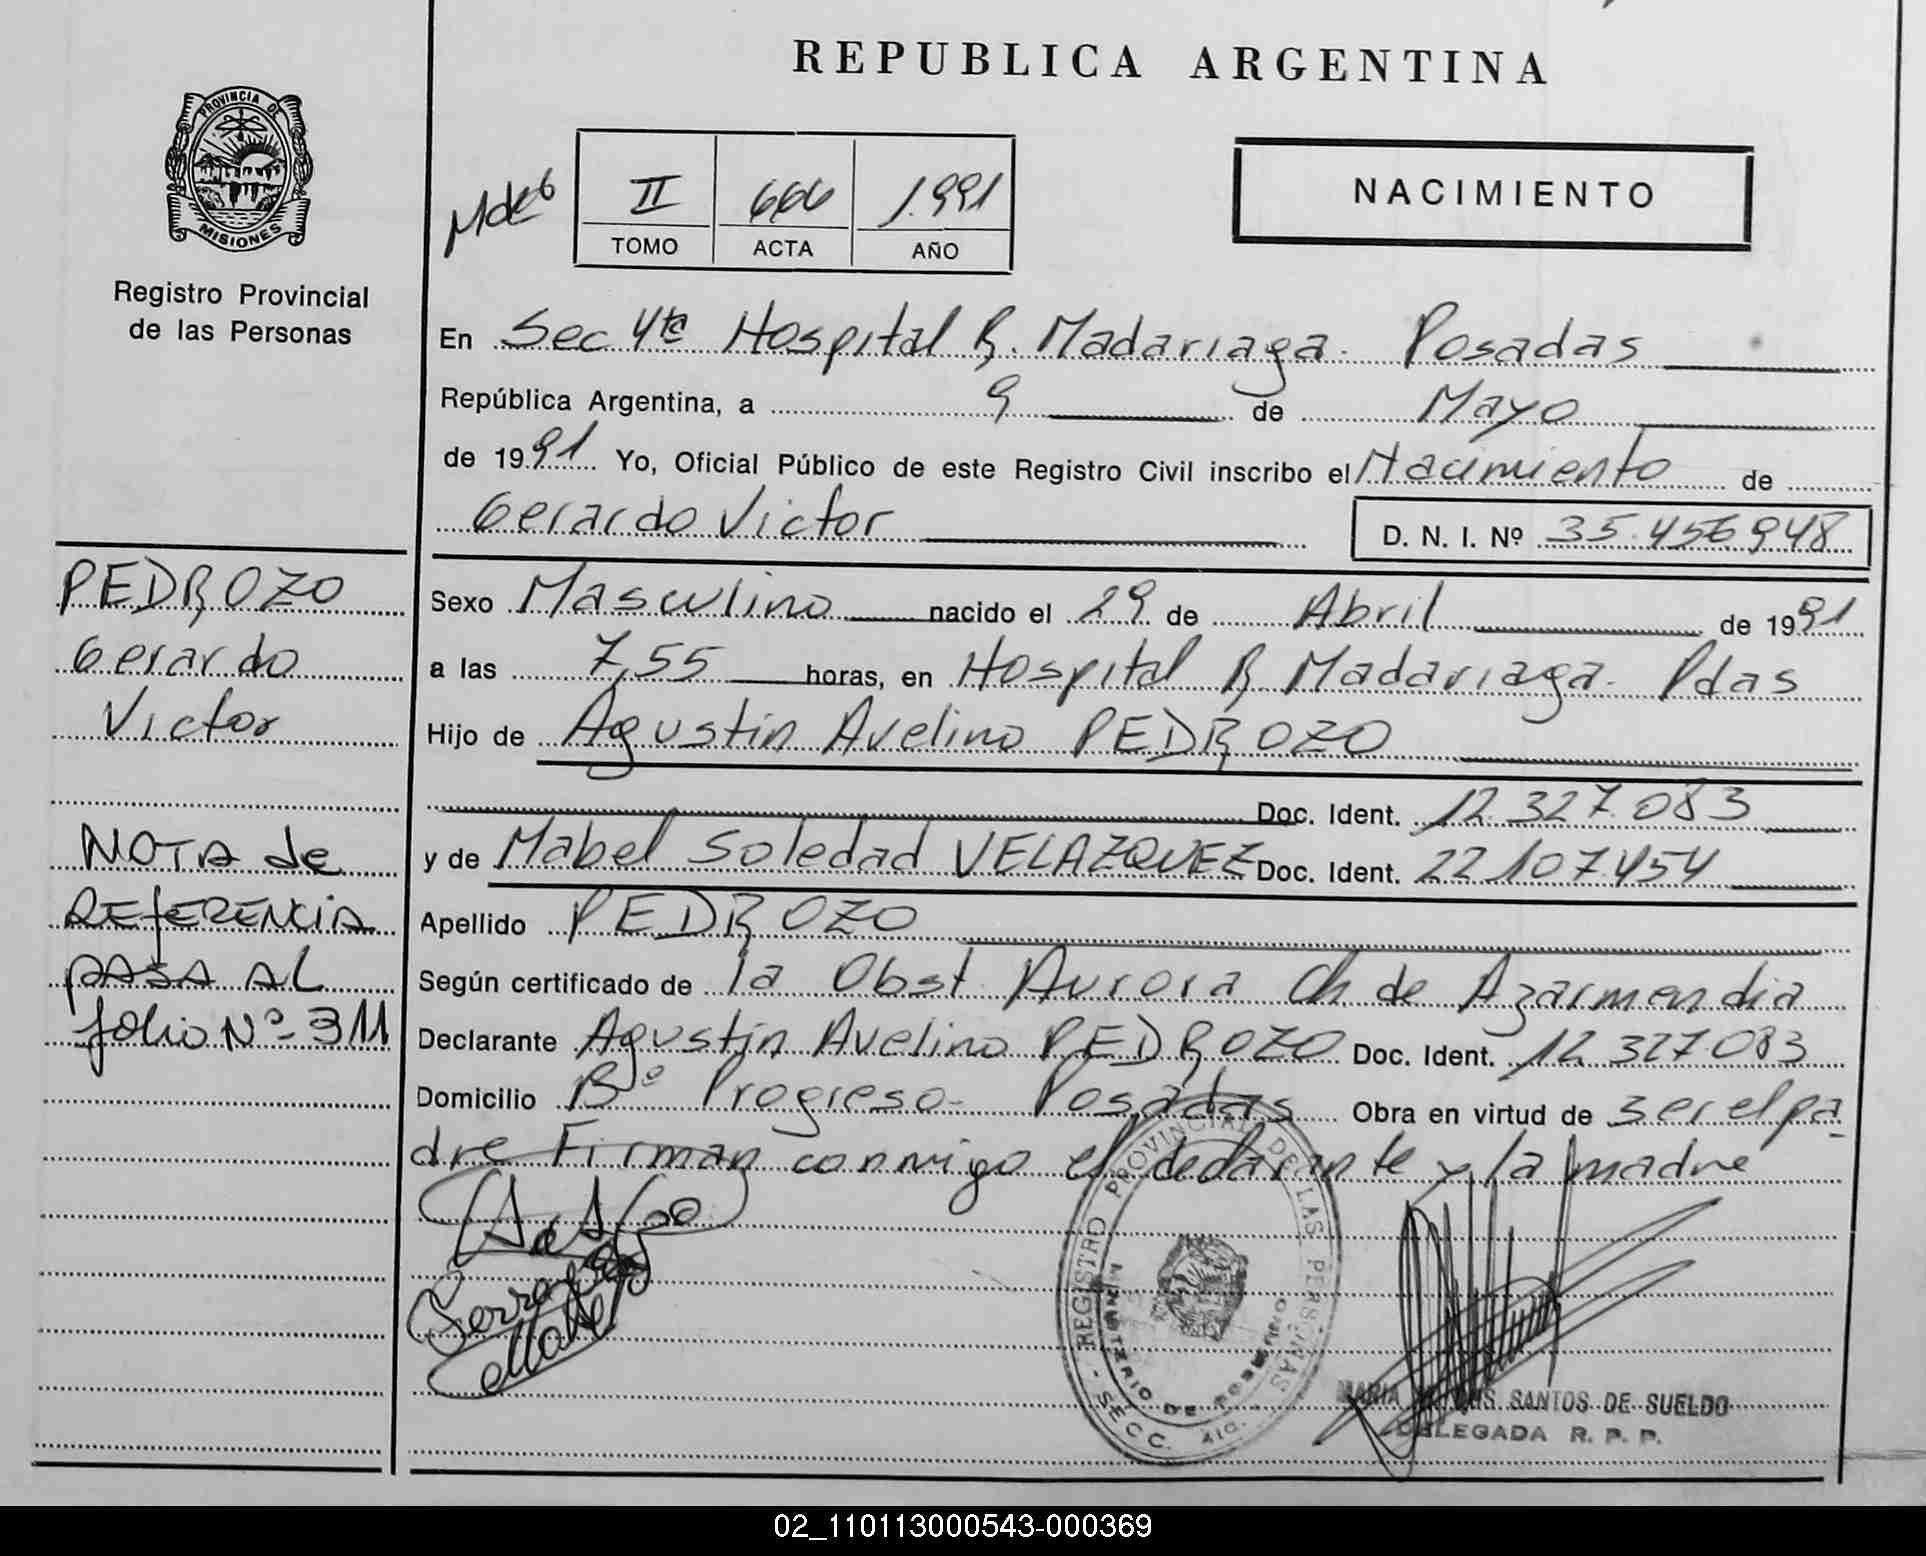 REPUBLICA ARGENTINA
PROVINCIA DE
MISIONES
Registro Provincial
de las Personas
II 666 1.991
TOMO ACTA AÑO
NACIMIENTO
En Sec 4ta Hospital R. Madariaga. Posadas
República Argentina, a 9 de Mayo
de 1991 Yo, Oficial Público de este Registro Civil inscribo el Nacimiento de
Gerardo Victor D. N. I. Nº 35.456948
PEDROZO
Gerardo
Victor
NOTA de
REFERENCIA
PASA AL
folio Nº- 311
Sexo Masculino nacido el 29 de Abril de 1991
a las 7,55 horas, en Hospital R Madariaga. Pdas
Hijo de Agustin Avelino PEDROZO
Doc. Ident. 12.327.083
y de Mabel Soledad VELAZQUEZ Doc. Ident. 22.107.454
Apellido PEDROZO
Según certificado de la Obst. Aurora Ch de Azarmendia
Declarante Agustin Avelino PEDROZO Doc. Ident. 12.327.083
Domicilio Bº Progreso- Posadas Obra en virtud de ser el pa
dre Firman conmigo el declarante y la madre
REGISTRO PROVINCIAL DE LAS PERSONAS
MINISTERIO DE GOBIERNO
- SECC. 4ta. -
MARIA SANTOS DE SUELDO
DELEGADA R. P. P.
02_110113000543-000369